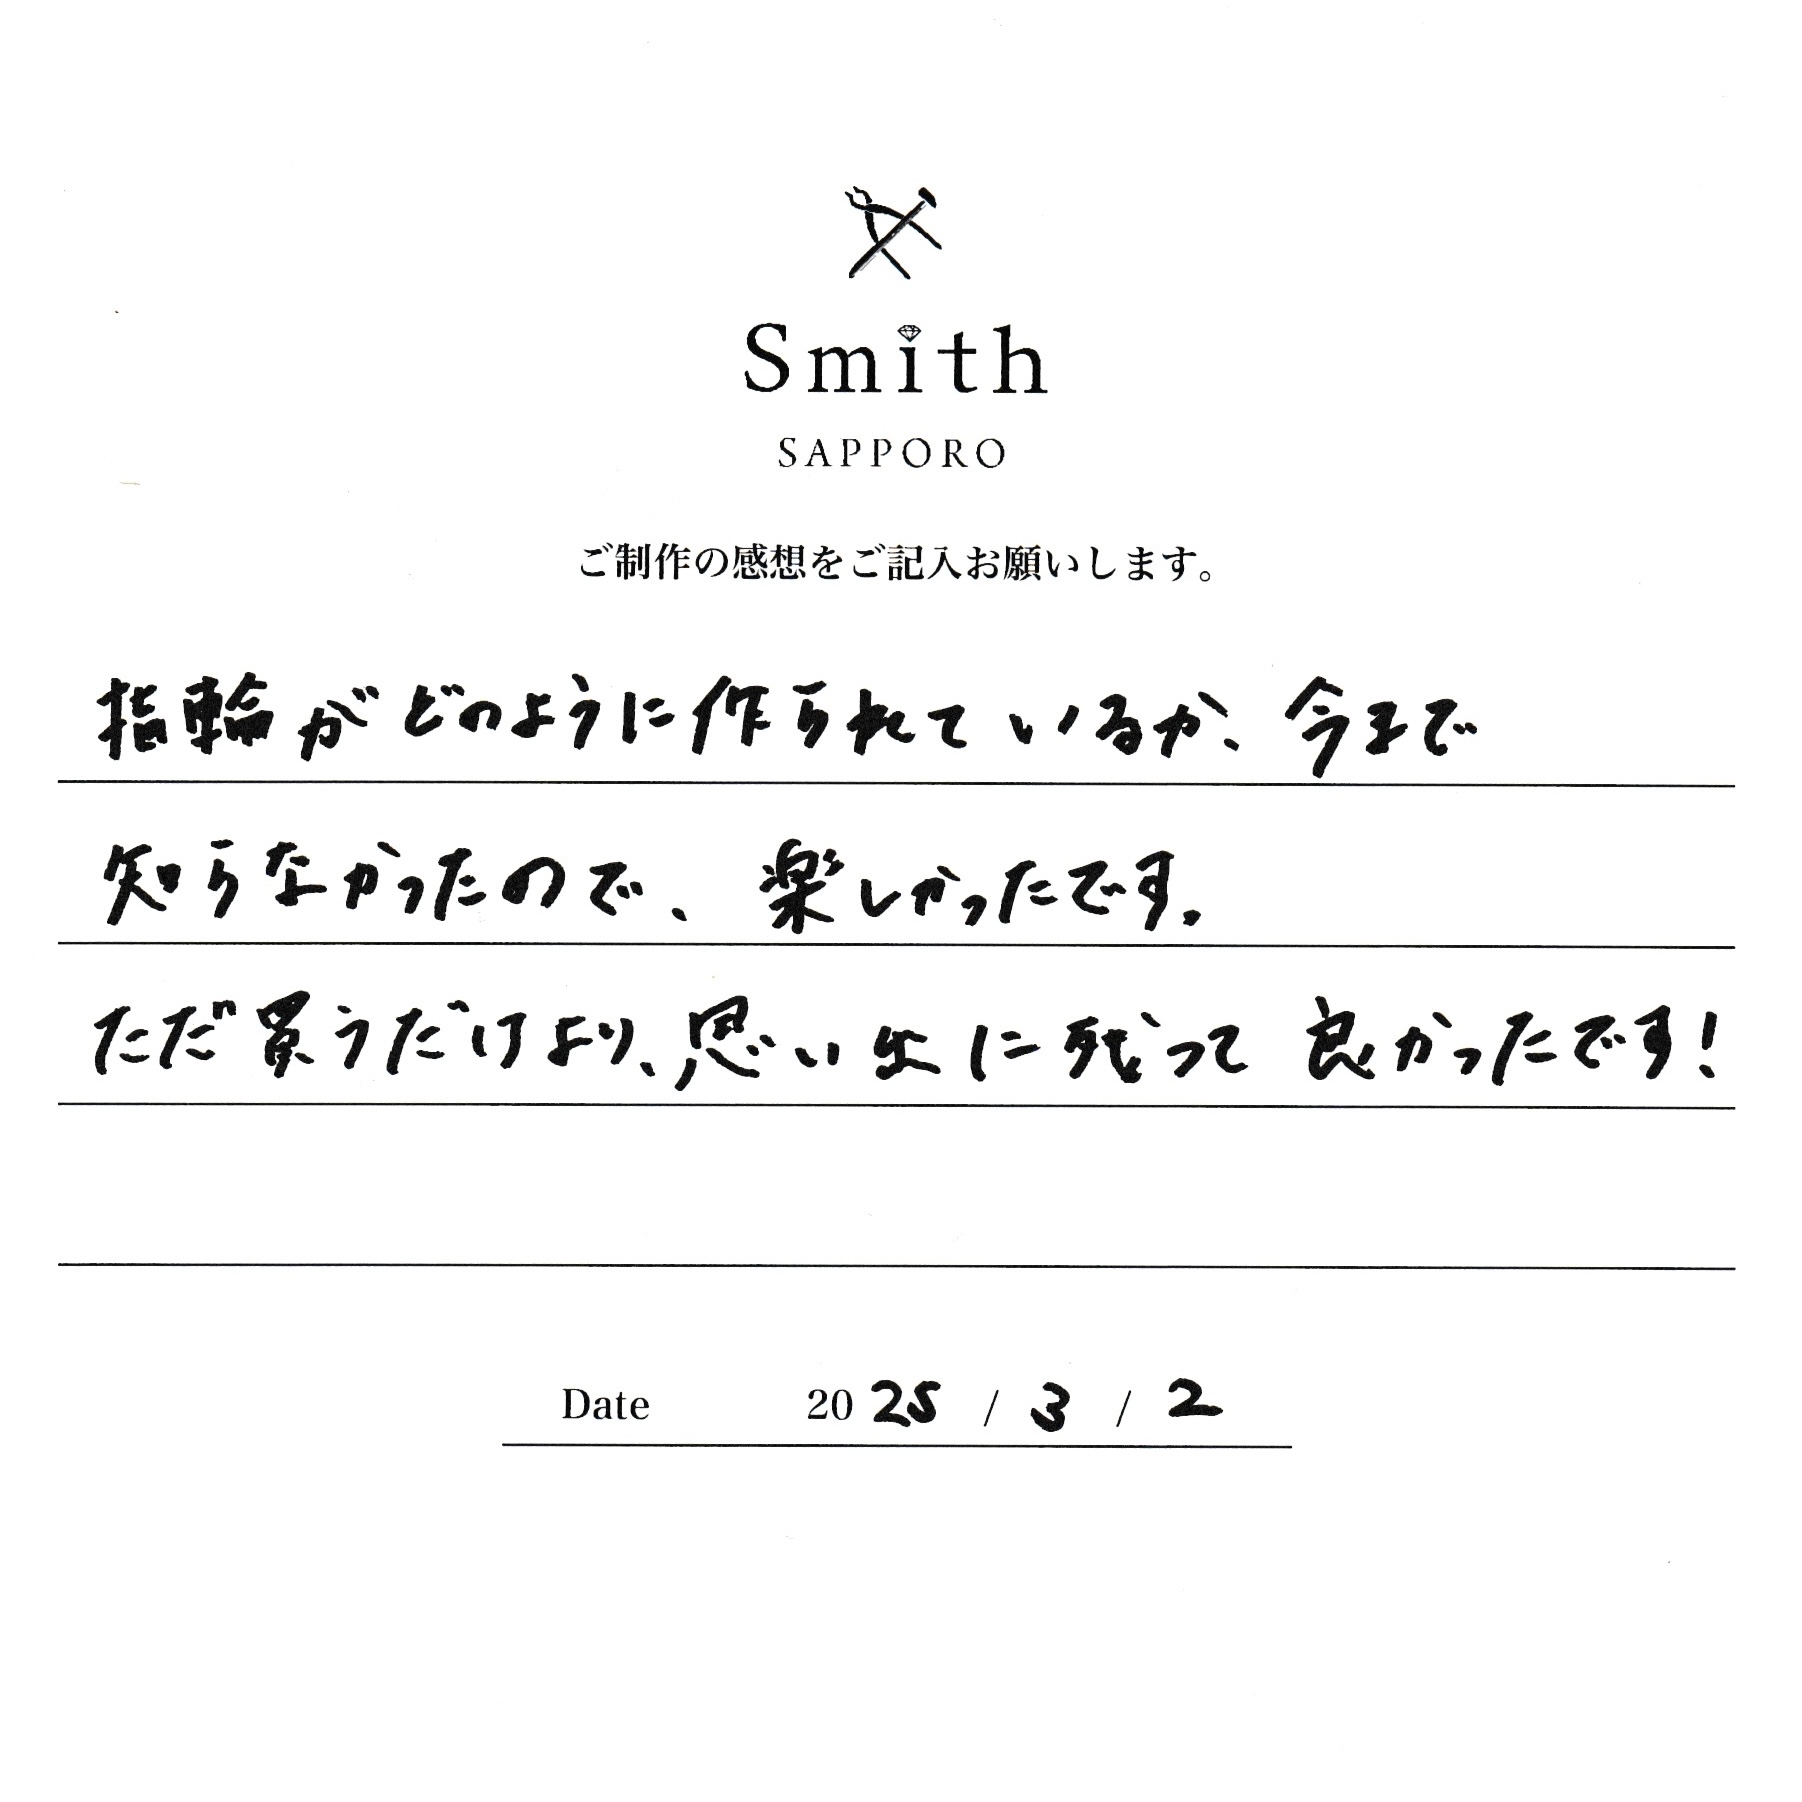 Smith
SAPPORO
ご制作の感想をご記入お願いします。
指輪がどのように作られているか、今まで
知らなかったので、楽しかったです。
ただ買うだけより、思い出に残って良かったです!
Date 2025 / 3 / 2